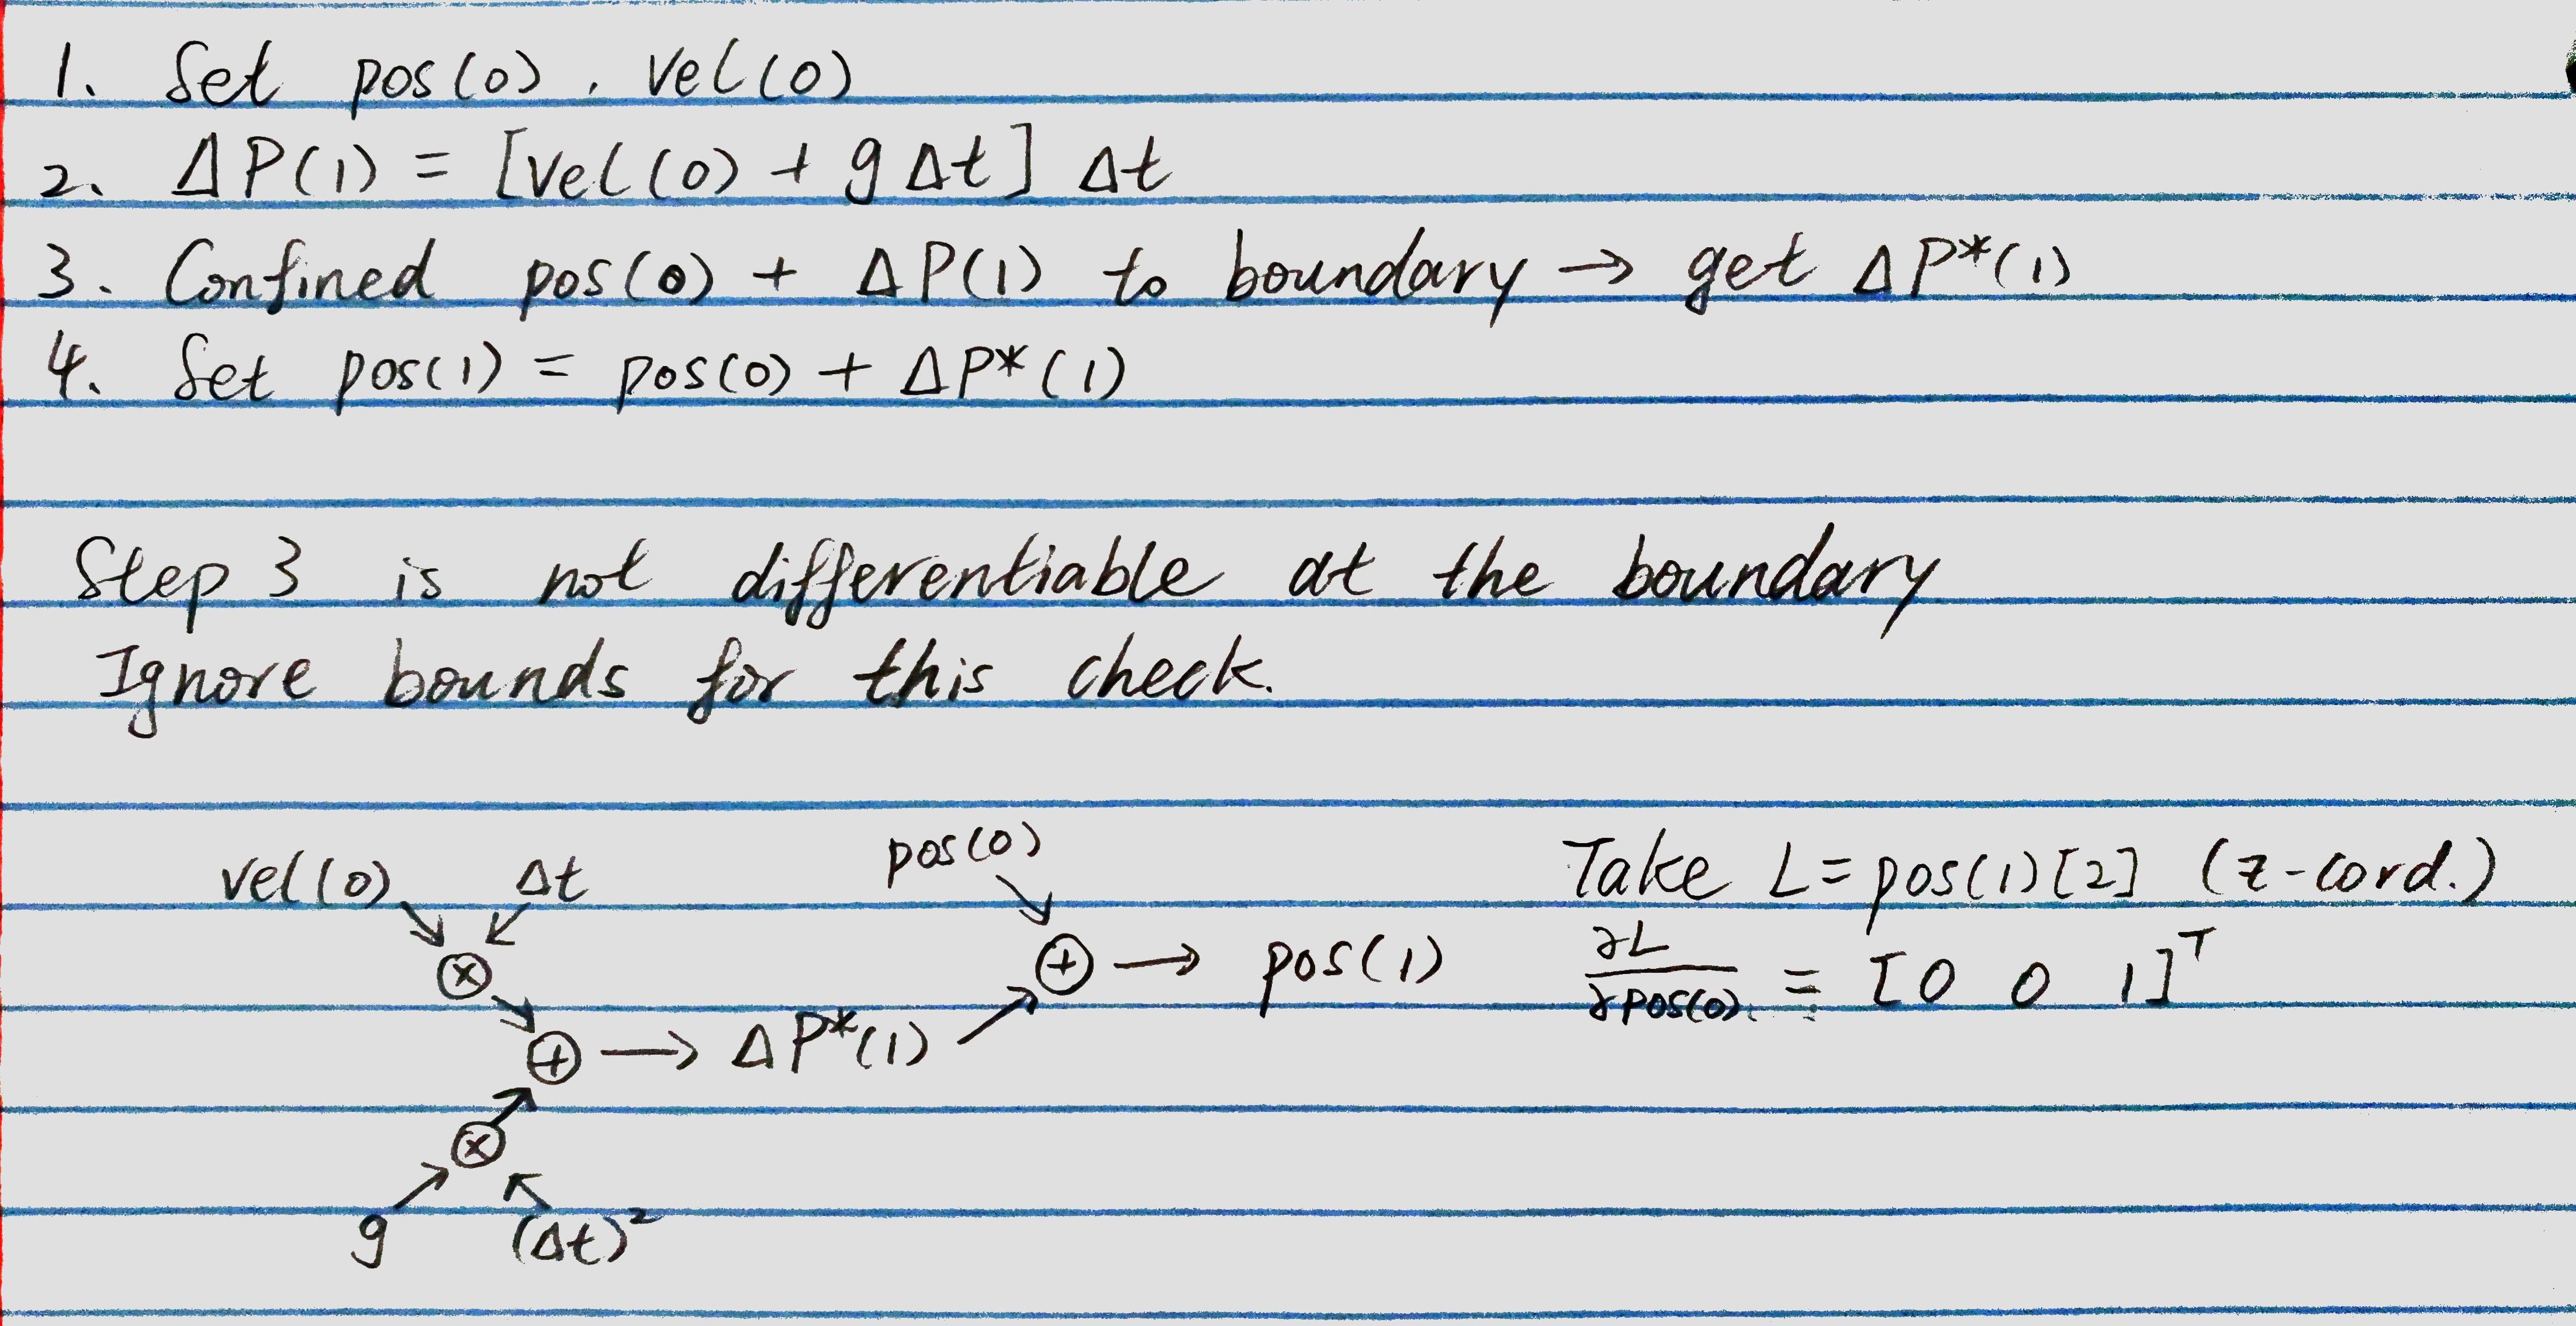 1. Set pos(0), vel(0)
2. ΔP(1) = [vel(0) + gΔt] Δt
3. Confined pos(0) + ΔP(1) to boundary → get ΔP*(1)
4. Set pos(1) = pos(0) + ΔP*(1)
Step 3 is not differentiable at the boundary
Ignore bounds for this check.
vel(0) Δt
⊗
⊕ → ΔP*(1)
⊗
g (Δt)²
pos(0)
⊕ → pos(1)
Take L = pos(1)[2] (z-cord.)
∂L/∂pos(0) = [0 0 1]ᵀ